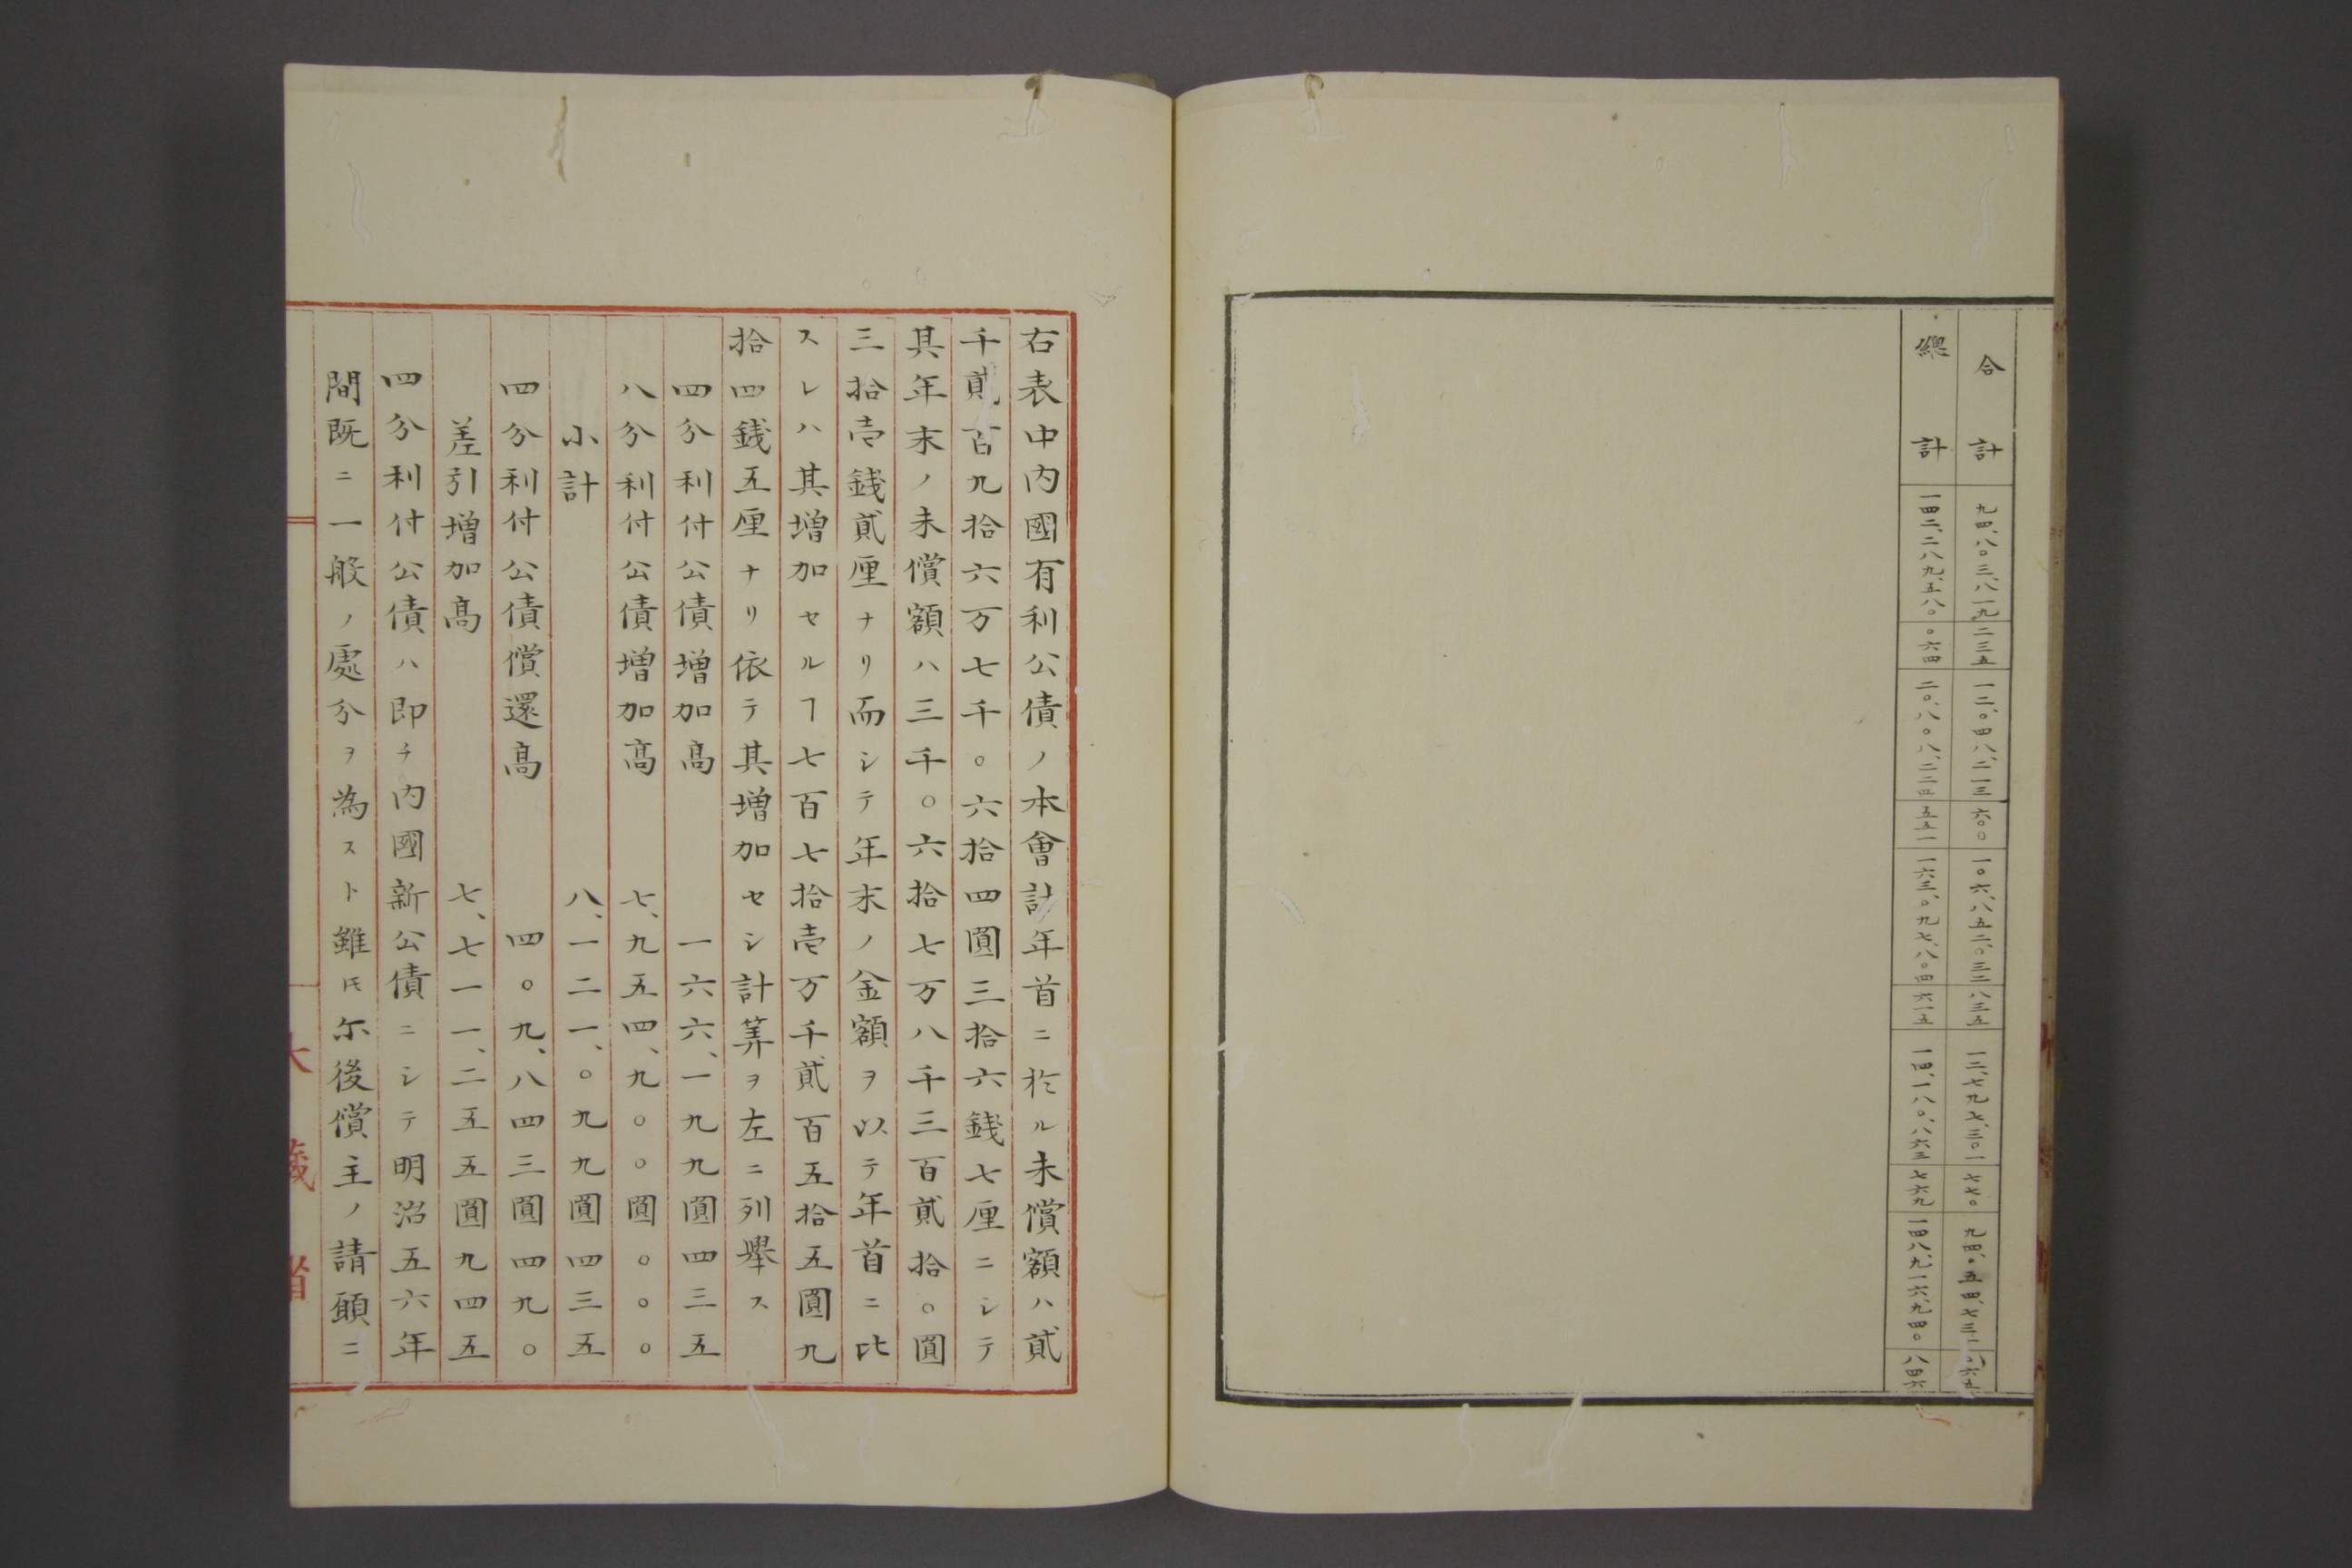 合計 九四、八〇三、八一九 二三五 一二、〇四八、二一三 六〇〇 一〇六、八五二、〇三二 八三五 一二、七九七、三〇一 七七〇 九四、〇五四、七三一 〇六五
總計 一四二、二八九、五八〇 〇六四 二〇、八〇八、二二四 五五一 一六三、〇九七、八〇四 六一五 一四、一八〇、八六三 七六九 一四八、九一六、九四〇 八四六
右表中內國有利公債ノ本會計年首ニ於ル未償額ハ貳
千貳百九拾六万七千〇六拾四圓三拾六錢七厘ニシテ
其年末ノ未償額ハ三千〇六拾七万八千三百貳拾〇圓
三拾壱錢貳厘ナリ而シテ年末ノ金額ヲ以テ年首ニ比
スレハ其增加セルヿ七百七拾壱万千貳百五拾五圓九
拾四錢五厘ナリ依テ其增加セシ計筭ヲ左ニ列舉ス
四分利付公債增加高 一六六、一九九圓四三五
八分利付公債增加高 七、九五四、九〇〇圓〇〇〇
小計 八、一二一、〇九九圓四三五
四分利付公債償還高 四〇九、八四三圓四九〇
差引增加高 七、七一一、二五五圓九四五
四分利付公債ハ即チ內國新公債ニシテ明治五六年
間既ニ一般ノ處分ヲ為スト雖𪜈尓後償主ノ請願ニ
大藏省